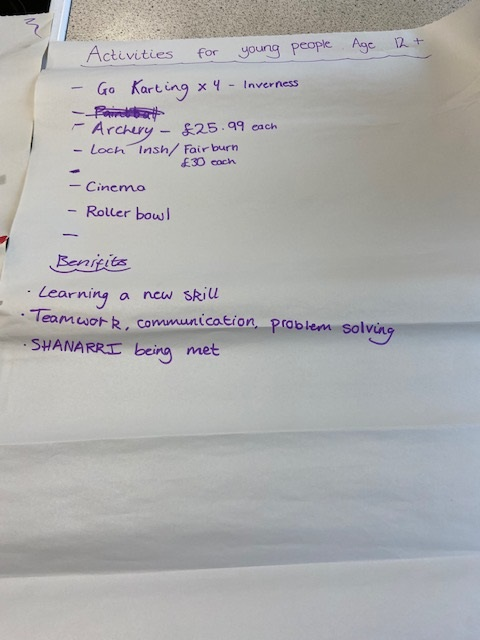 Activities for young people Age 12+
- Go Karting x 4 - Inverness
- Paintball
- Archery - £25.99 each
- Loch Insh / Fairburn
£30 each
-
- Cinema
- Roller bowl
-
Benifits
· Learning a new skill
· Teamwork, communication, problem solving
· SHANARRI being met